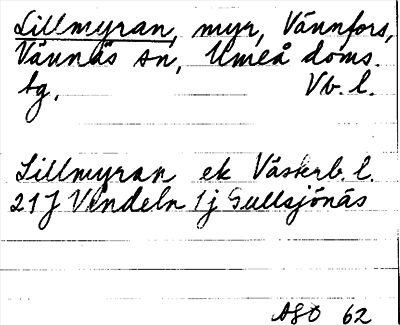 Lillmyran, myr, Vännfors,
Vännäs sn, Umeå doms.
bg, Vb. l.
Lillmyran ek Västerb. l.
21J Vindeln 1j Gullsjönäs
ASO 62